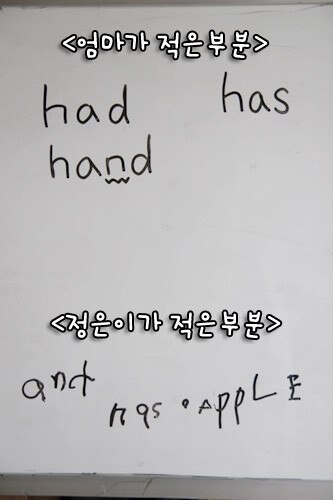 <엄마가 적은부분>
had has
hand
<정은이가 적은부분>
ant has . APPLE